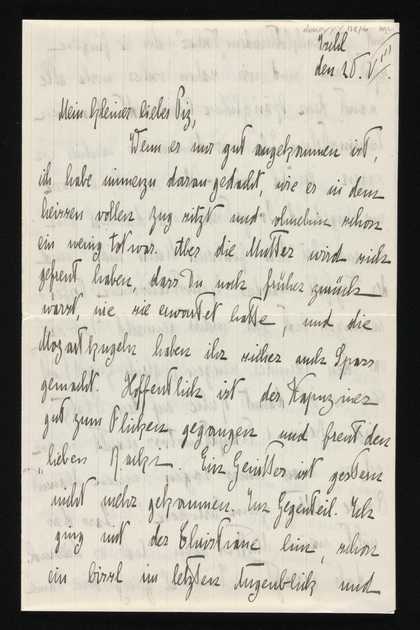 Ischl
den 20. VIII.
Mein kleiner lieber Piz,
Wenn er nur gut angekommen ist,
ich habe immerzu daran gedacht, wie er in dem
heissen vollen Zug sitzt und ohnehin schon
ein wenig tot war. Aber die Mutter wird sich
gefreut haben, dass Du noch früher zurück
warst, wie sie erwartet hatte, und die
Mozartkugeln haben ihr sicher auch Spass
gemacht. Hoffentlich ist der Kapuziner
gut zum Flicken gegangen und freut den
"lieben
Ein Gewitter ist gestern
nicht mehr gekommen. Im Gegenteil. Ich
ging mit der Christiane hin, schon
ein bissl im letzten Augenblick und